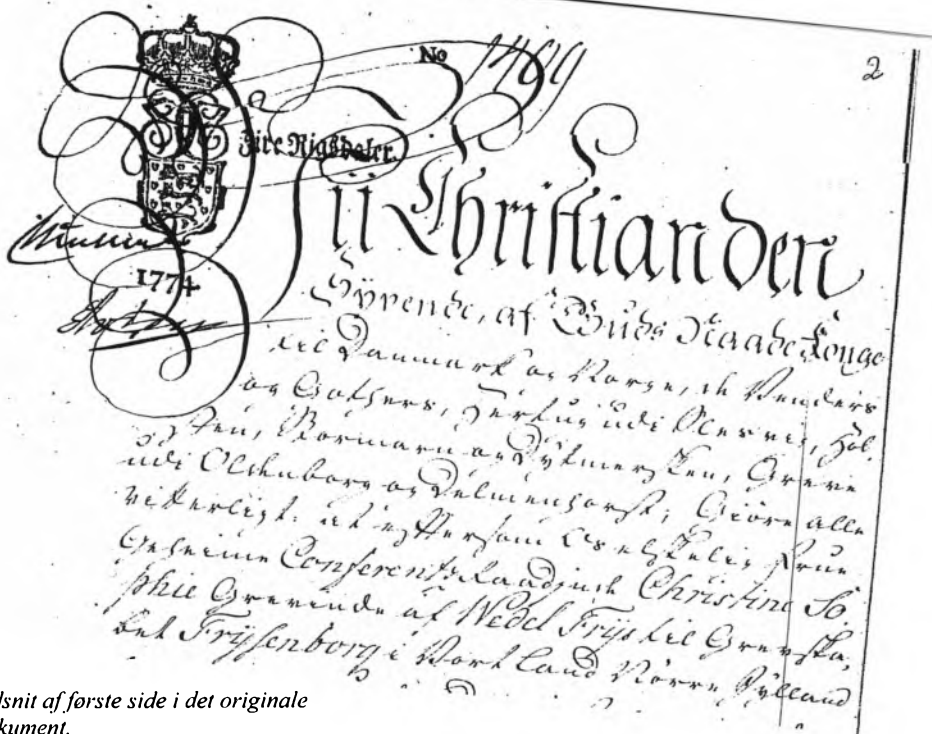 No 1489
2
Fire Rigsdaler.
Vii Christian den
1774
Syvende, af Guds Naade Konge
til Danmark og Norge, de Venders
og Gothers, Hertug udi Slesvig, Hol-
sten, Stormarn og Dytmersken, Greve
udi Oldenborg og Delmenhorst; Giøre alle
vitterligt: at eftersom Os elskelig Frue
Geheime Conferentz Raadinde Christine So-
phie Grevinde af Wedel Friis til Grevska-
bet Friisenborg i Vort Land Nørre Jylland
lsnit af første side i det originale
kument.